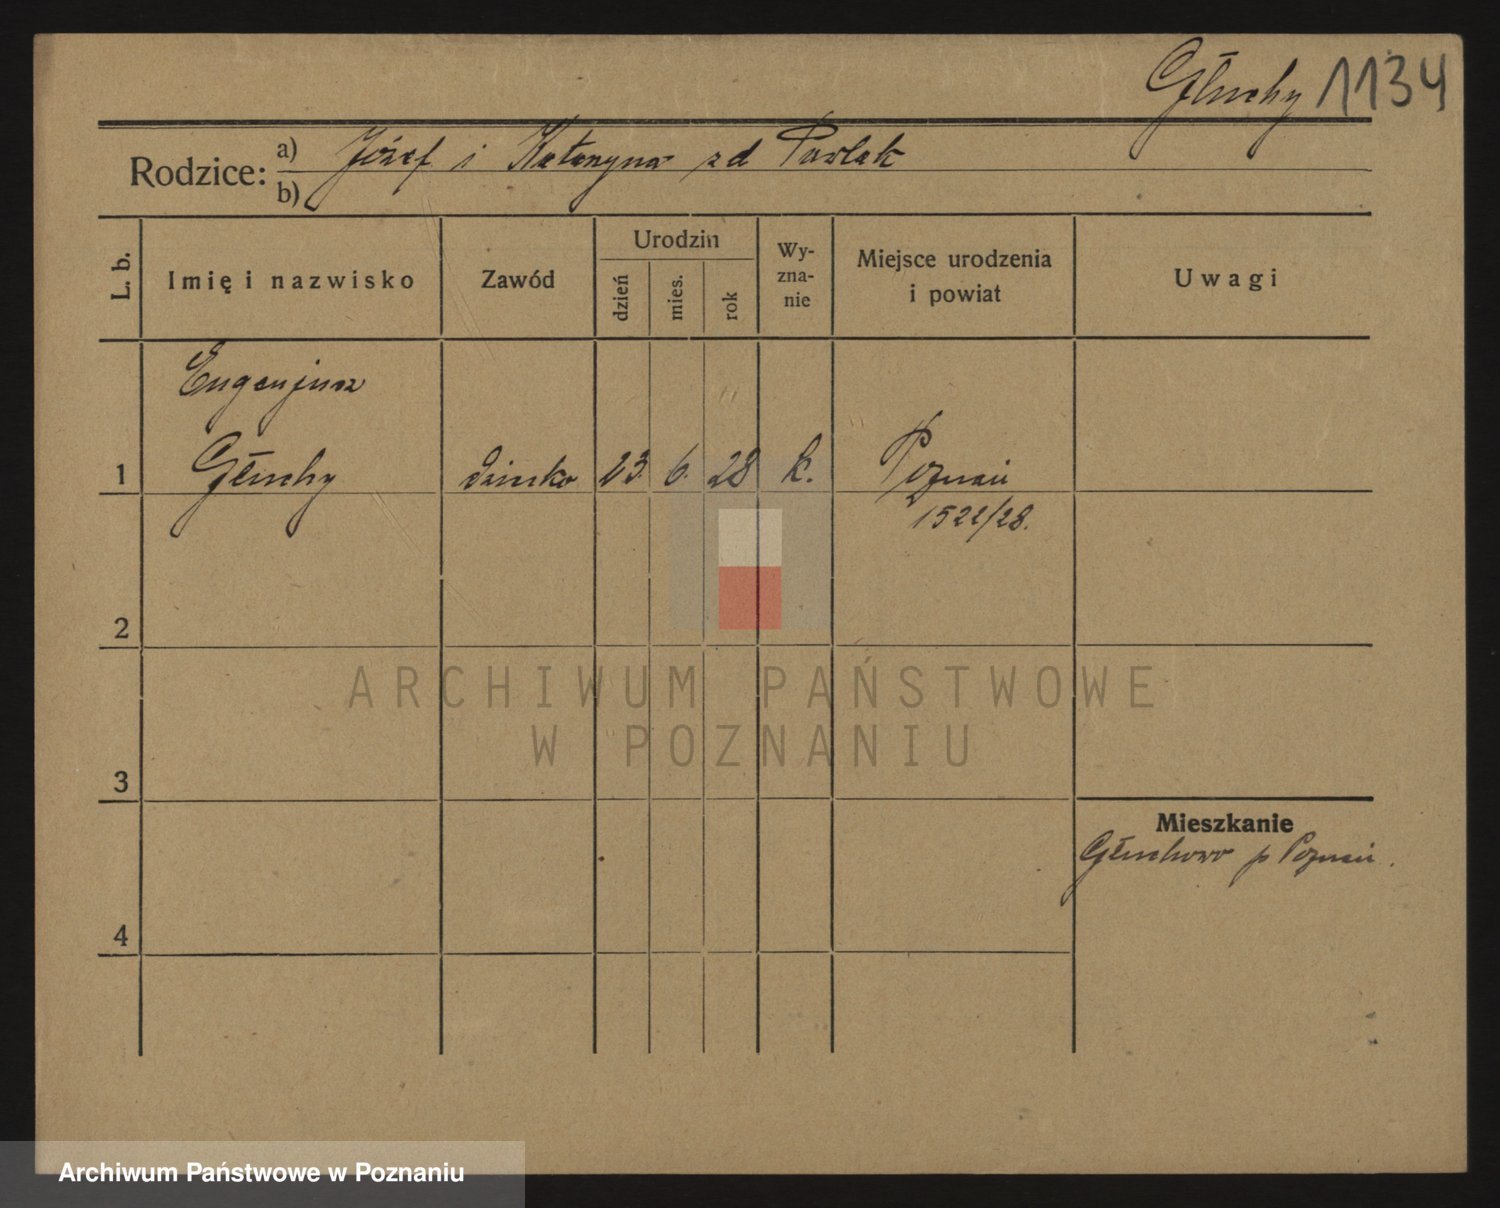 Głuchy 1134
Rodzice: a) Józef i Katarzyna zd Pawlak
b)
L. b.
Imię i nazwisko
Zawód
Urodzin
dzień
mies.
rok
Wy-
zna-
nie
Miejsce urodzenia
i powiat
Uwagi
Eugenjusz
1 Głuchy dziecko 23. 6. 28 k. Poznań
1522/28.
2
3
4
Mieszkanie
Głuchowo p Poznań.
ARCHIWUM PAŃSTWOWE
W POZNANIU
Archiwum Państwowe w Poznaniu